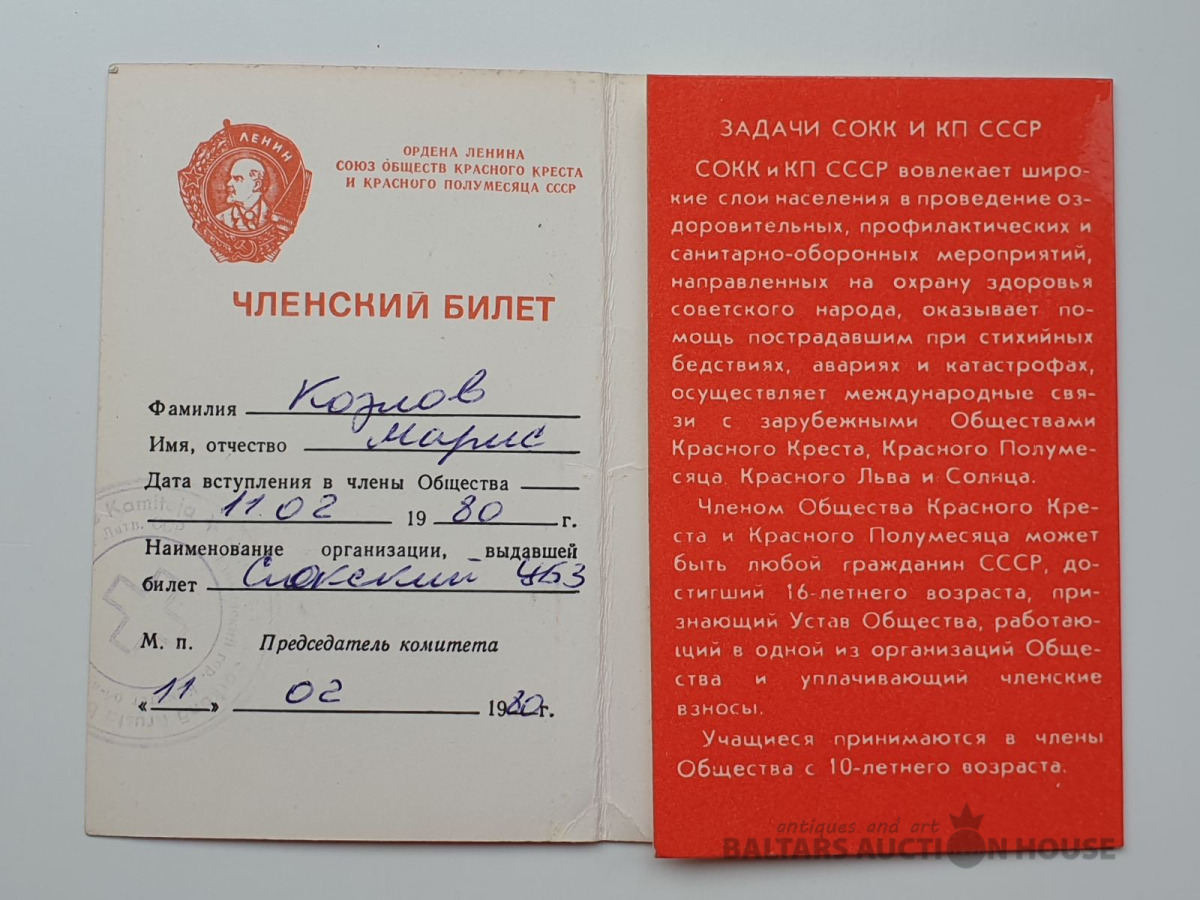 ЛЕНИН
ОРДЕНА ЛЕНИНА
СОЮЗ ОБЩЕСТВ КРАСНОГО КРЕСТА
И КРАСНОГО ПОЛУМЕСЯЦА СССР
ЧЛЕНСКИЙ БИЛЕТ
Фамилия Козлов
Имя, отчество Марис
Дата вступления в члены Общества
11 02 1980 г.
Наименование организации, выдавшей
билет Слокский ЦБЗ
М. п. Председатель комитета
«11» 02 1980г.
Komiteja
ЗАДАЧИ СОКК И КП СССР
СОКК и КП СССР вовлекает широ-
кие слои населения в проведение оз-
доровительных, профилактических и
санитарно-оборонных мероприятий,
направленных на охрану здоровья
советского народа, оказывает по-
мощь пострадавшим при стихийных
бедствиях, авариях и катастрофах,
осуществляет международные свя-
зи с зарубежными Обществами
Красного Креста, Красного Полуме-
сяца, Красного Льва и Солнца.
Членом Общества Красного Кре-
ста и Красного Полумесяца может
быть любой гражданин СССР, до-
стигший 16-летнего возраста, при-
знающий Устав Общества, работаю-
щий в одной из организаций Обще-
ства и уплачивающий членские
взносы.
Учащиеся принимаются в члены
Общества с 10-летнего возраста.
antiques and art
BALTARS AUCTION HOUSE